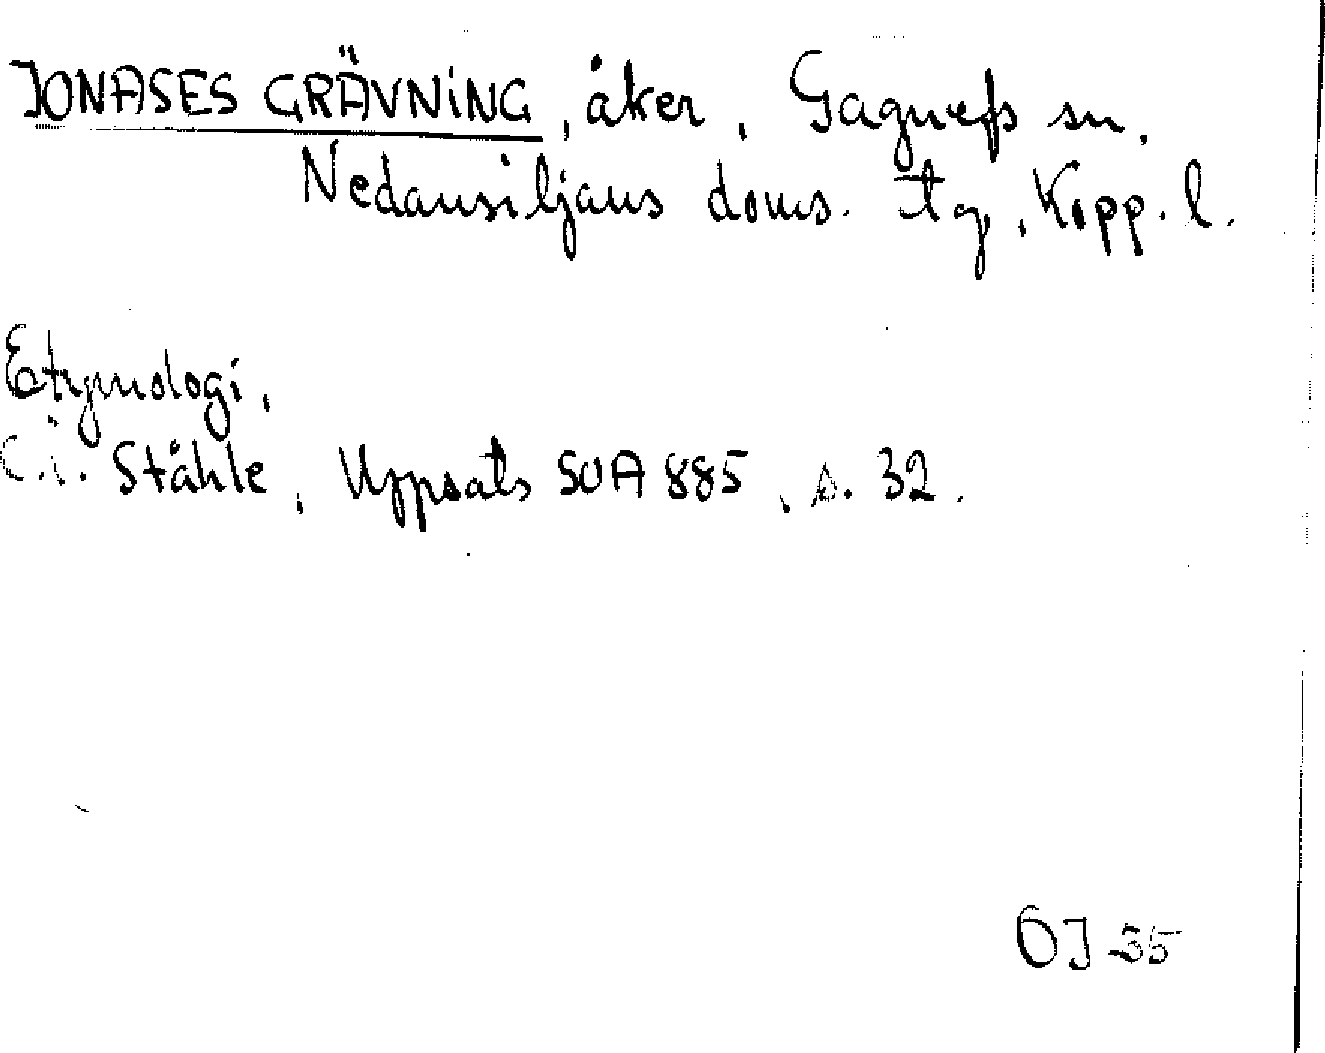 JONASES GRÄVNING, åker, Gagnefs sn.
Nedansiljans doms. tg, Kopp. l.
Etymologi,
C.I. Ståhle, Uppsats SOA 885, s. 32.
OJ 35